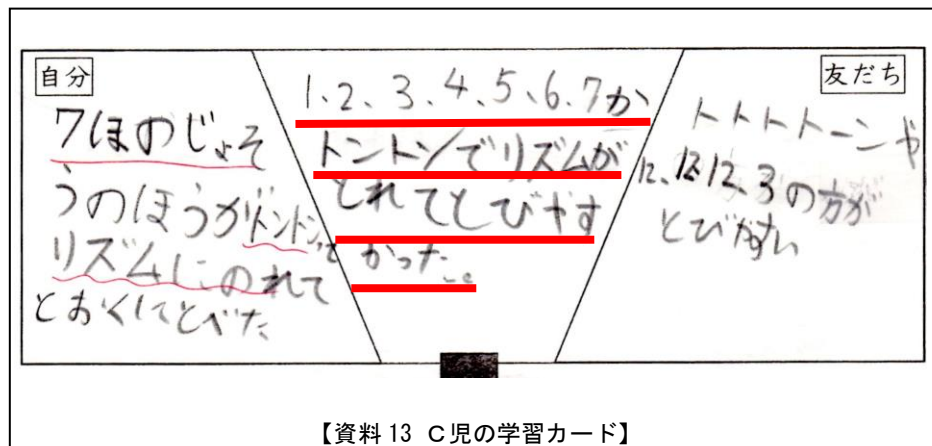 自分
7ほのじょそ
うのほうがトントンって
リズムにのれて
とおくにとべた
1、2、3、4、5、6、7か
トントンでリズムが
とれてとびやす
かったこと
友だち
トトトトーンや
12、12、12、3の方が
とびやすい
【資料 13 C児の学習カード】